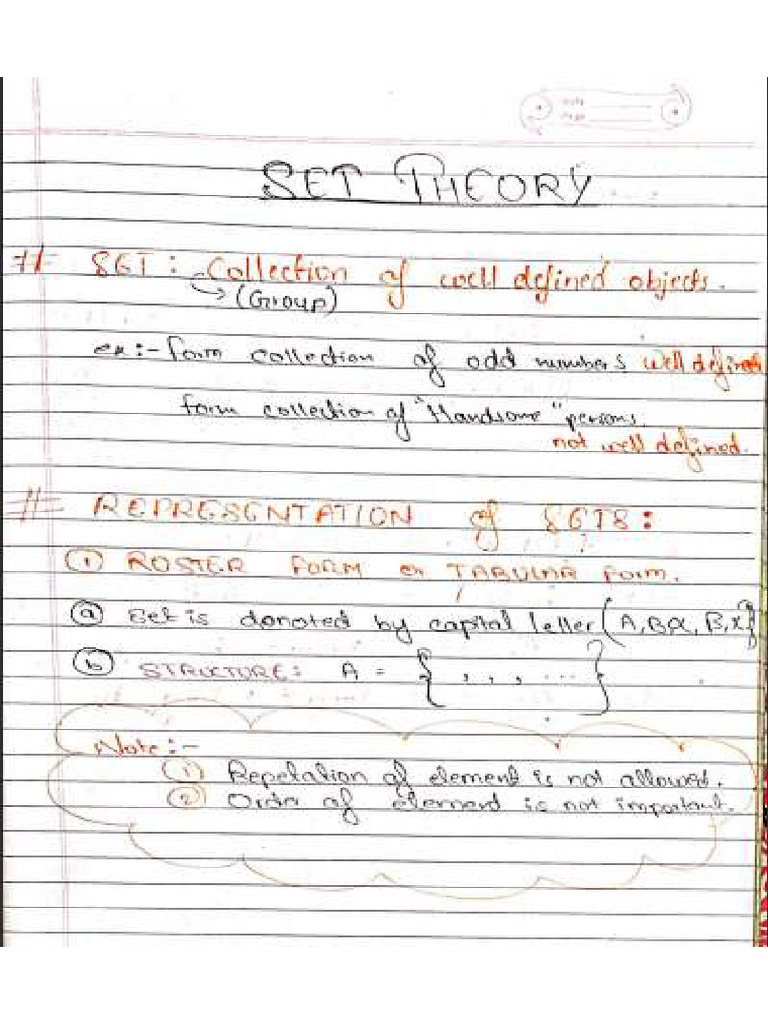 SET THEORY
# SET : Collection of well defined objects.
→ (Group)
ex :- form collection of odd numbers well defined
form collection of "Handsome" persons.
not well defined.
# REPRESENTATION of SETS :
① ROSTER FORM or TABULAR form.
ⓐ Set is donoted by capital letter (A, B, α, β, x)
ⓑ STRUCTURE : A = { , , , ... }
Note :-
① Repetation of element is not allowed.
② Order of element is not important.